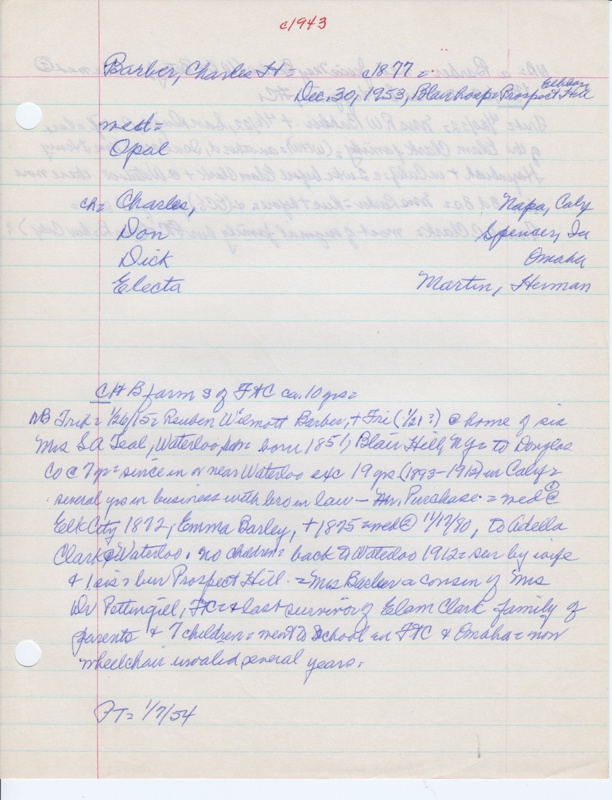 c1943
Barber, Charles H c1877 =
Dec. 30, 1953, Blair hosp = Prospect Hill Elkhorn
med =
Opal
ch = Charles, Napa, Caly
Don Spenser, Ia
Dick Omaha
Electa Martin, Herman
CHB farm S of FtC ca. 10 yrs =
Trib = 1/26/15 = Reuben Wilmott Barber, + Fri (1/21?) @ home of sis
Mrs S.A Teal, Waterloo, born 1851, Blair Hill, NY = to Douglas
Co @ 7 yr = since in or near Waterloo exc 19 yrs (1893-1912) in Caly =
several yrs in business with bro in law - Mr. Purchase = med @
Elk City 1872, Emma Barley, + 1875 = med @ 11/17/80, to Adella
Clark @ Waterloo. no children = back to Waterloo 1912 = sur by wife
& 1 sis = bur Prospect Hill. = Mrs Barber a cousin of Mrs
Dr Pettingill, FtC = & last survivor of Elam Clark family of
parents & 7 children = went to school in FtC & Omaha = now
wheelchair invalid several years.
FT = 1/7/54